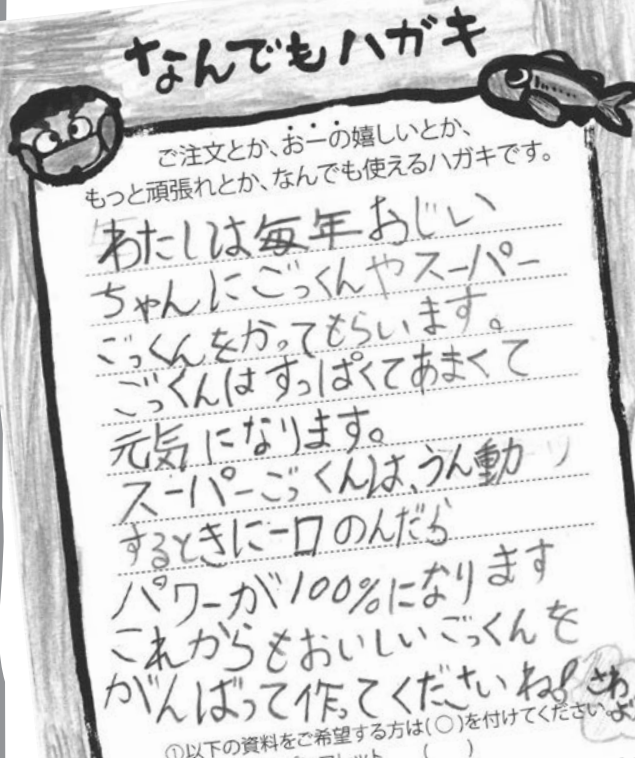 なんでもハガキ
ご注文とか、おーの嬉しいとか、
もっと頑張れとか、なんでも使えるハガキです。
わたしは毎年おじい
ちゃんにごっくんやスーパー
ごっくんをかってもらいます。
ごっくんはすっぱくてあまくて
元気になります。
スーパーごっくんは、うん動
するときに一口のんだら
パワーが100%になります
これからもおいしいごっくんを
がんばって作ってくださいね!
①以下の資料をご希望する方は(○)を付けてください。
( )